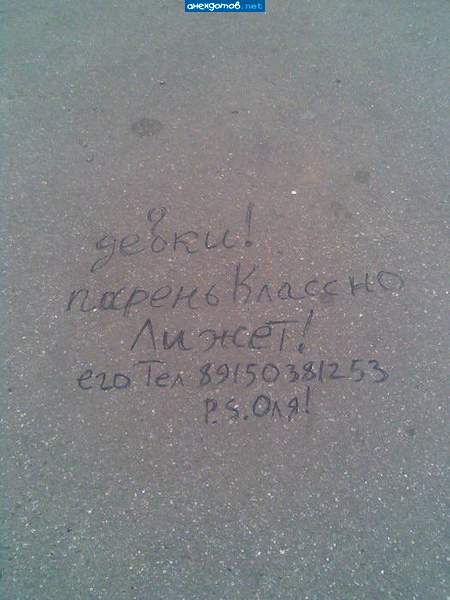 анекдотов.net
девки!
парень Классно
Лижет!
его Тел 89150381253
P.S.Оля!